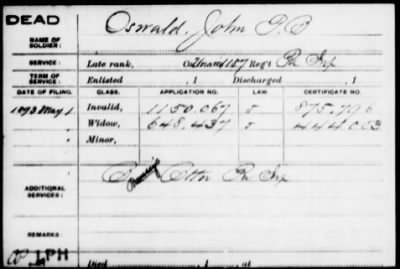 DEAD
NAME OF SOLDIER: Oswald, John P. B
SERVICE: Late rank, 157 Reg't Pa Inf
TERM OF SERVICE: Enlisted , 1 Discharged , 1
DATE OF FILING. CLASS. APPLICATION NO. LAW. CERTIFICATE NO.
1893 May 1 Invalid, 1150.067 875.796
Widow, 648.437 444003
Minor,
ADDITIONAL SERVICES: Pa Inf
REMARKS:
LPH
Died , 1 , at